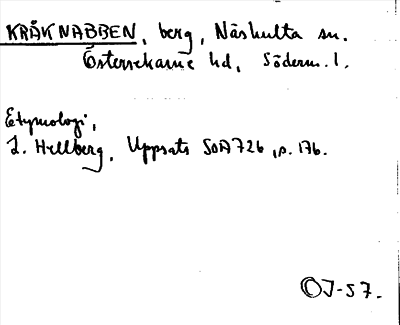 KRÅKNABBEN, berg, Näshulta sn.
Österrekarne hd, Söderm. l.
Etymologi,
L. Hellberg, Uppsats SOÄ 726, s. 17b.
OJ-57.